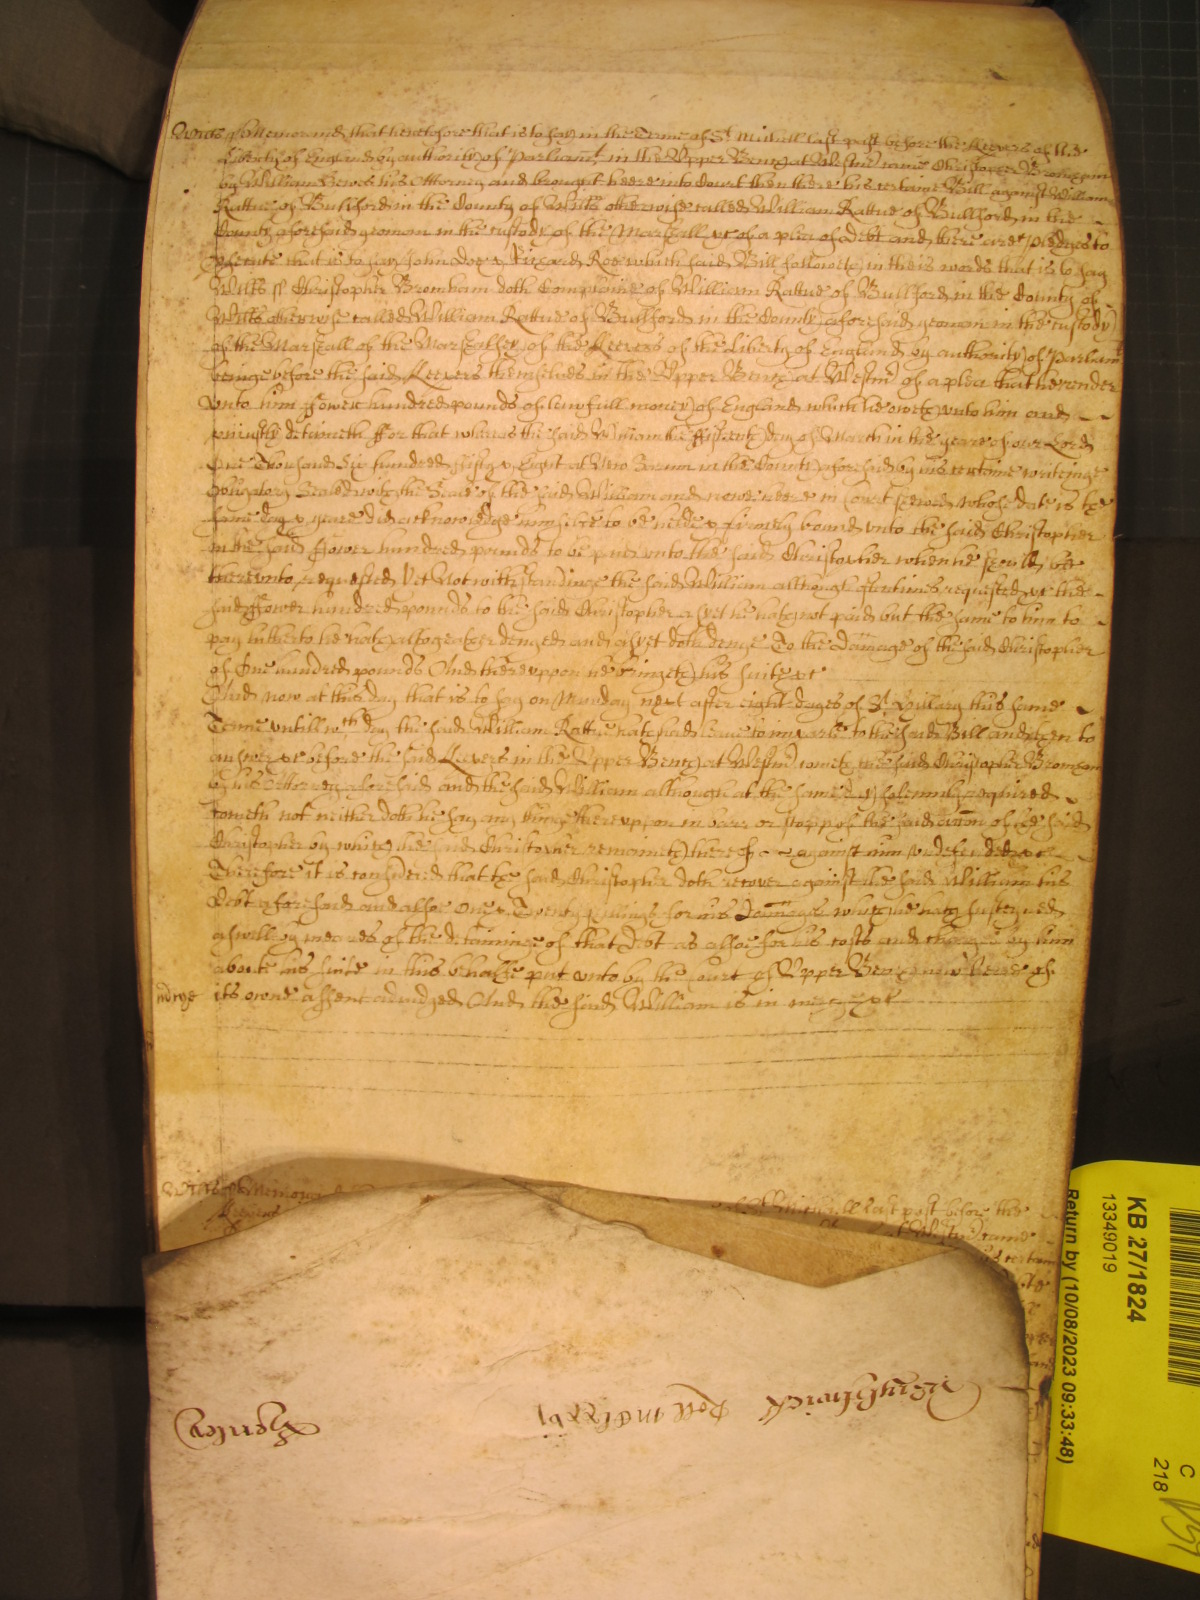 Wilts ss Memorand that heretofore that is to say in the Terme of St Michaell last past before the Keepers of the
Liberty of England by authority of Parliamt in the Upper Bench at Westmr came Christopher Bromham
by William Bewes his Attorney and brought heere into Court then there his certaine Bill against William
Rattue of Bulford in the County of Wilts otherwise called William Rattue of Bulford in the
County aforesaid yeoman in the custody of the Marshall &c of a plea of debt and there are pledges to
prosecute that is to say John Doe & Richard Roe which said Bill followeth in theis words that is to say
Wilts ss Christopher Bromham doth Complaine of William Rattue of Bulford in the County of
Wilts otherwise called William Rattue of Bulford in the County aforesaid yeoman in the custody
of the Marshall of the Marshalsey of the Keepers of the Liberty of England by authority of Parliamt
beinge before the said Keepers themselves in the Upper Bench at Westmr of a plea that he render
unto him ffower hundred pounds of lawfull money of England which he oweth unto him and
unjustly deteineth ffor that whereas the said William the ffifteenth day of March in the yeare of our Lord
One Thousand Six hundred fifty & Eight at New Sarum in the County aforesaid by his certaine writeinge
obligatory Sealed with the Seale of the said William and now heere in Court shewed whose date is the
same day & yeare did acknowledge himselfe to be held & firmely bound unto the said Christopher
in the said ffower hundred pounds to be paid unto the said Christopher when he should bee
thereunto requested Yet Notwithstandinge the said William although oftentimes requested &c the
said ffower hundred pounds to the said Christopher as yet he hath not paid but the same to him to
pay hitherto he hath altogeather denyed and as yet doth denye To the Damage of the said Christopher
of One hundred pounds And thereuppon he bringeth his suite &c
And now at this day that is to say on Munday next after eight dayes of St Hillary this same
Terme untill wch day the said William Rattue hath had leave to imparle to the said Bill and then to
answer &c before the said Keepers in the Upper Bench at Westmr cometh the said Christopher Bromham
by his Attorney aforesaid and the said William although at the same day solemnly required
cometh not neither doth he say any thinge thereuppon in barr or stopp of the said action of the said
Christopher by which the said Christopher remaineth thereof against him undefended &c
Therefore it is considered that the said Christopher doth recover against the said William his
Debt aforesaid and alsoe One & Twenty shillings for his Damages which he hath susteyned
aswell by meanes of the detaininge of that Debt as alsoe for his costs and charges by him
about his suite in this behalfe put unto by the Court of Upper Bench now heere of
mercye its owne assent adiudged And the said William is in mercy &c
Wilts ss Memorand St Michaell last past before the
Keepers at Westmr came
his certain
KB 27/1824
13349019
Return by (10/08/2023 09:33:48)
C
218